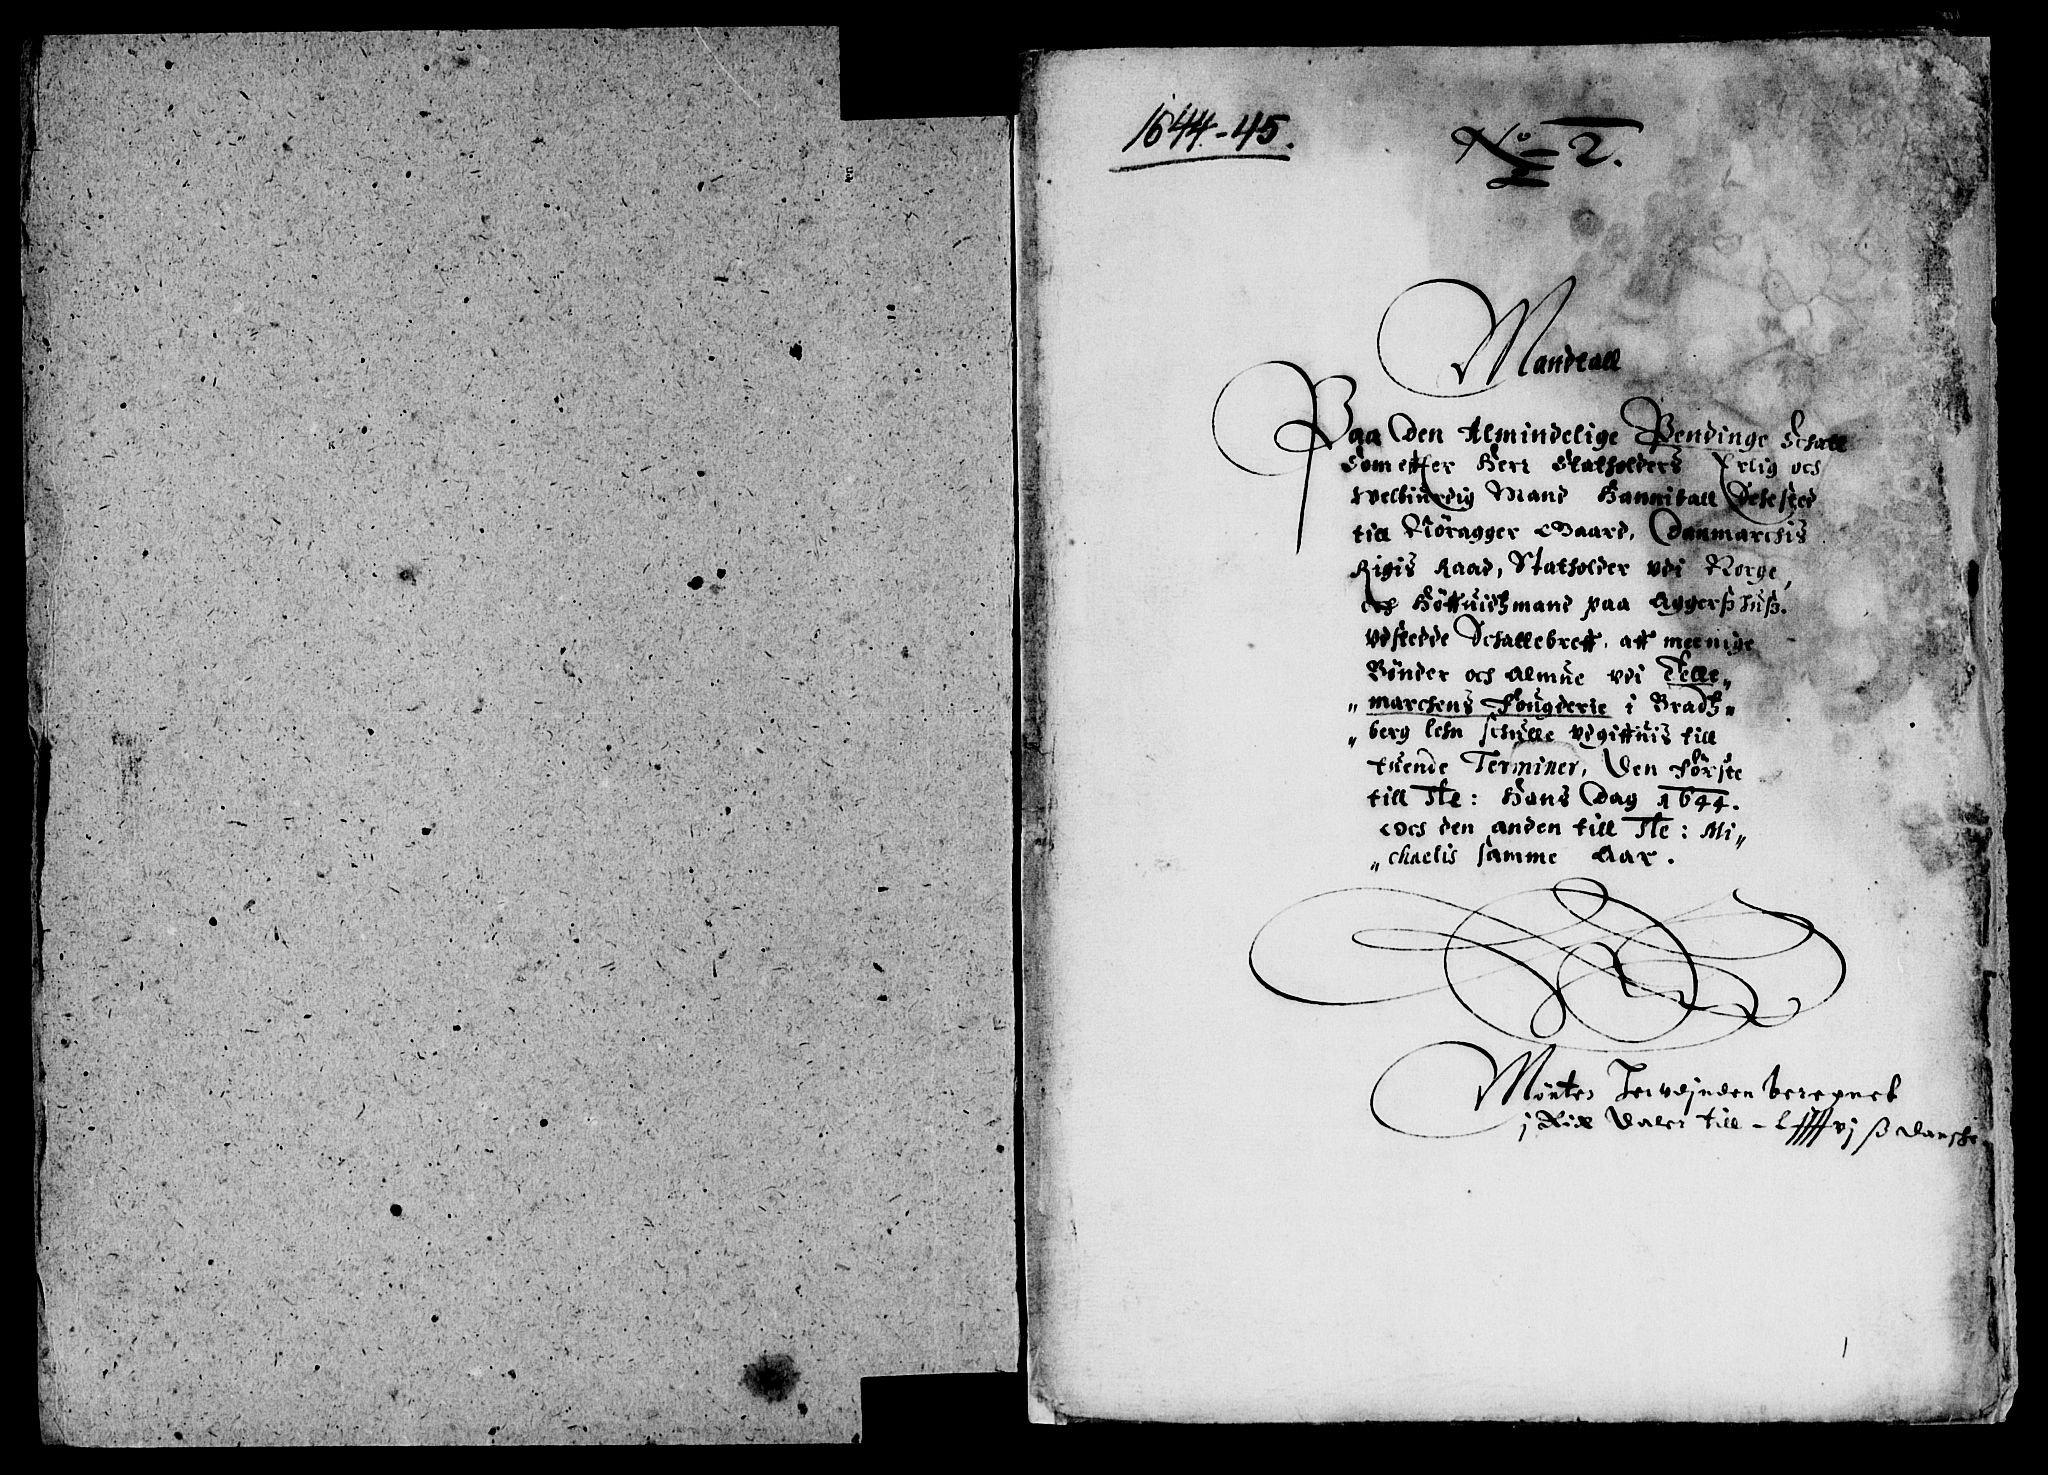 1644-45.
No 2.
Mandtall
Paa Den Almindelige Pendinge Schatt
Som effter Herr Statholders Erlig och
Welbiurdig Mand Hanniball Sehested
till Nöragger Gaard, Danmarchis
Rigis Raad, Statholder vdi Norge,
och Höffuidtzmand paa Aggerszhusz.
vdstedde Schattebreff, aff meenige
Bönder och Almue vdi Telle„
„ marchens Fougderie i Bradtz„
„ berg lehn schulle vdgiffuis till
tuende Terminer, Den Förste
till Ste: Hans Dag 1644.
Och den anden till Ste: Mi„
„ chaelis samme Aar.
Mönten Herudjnden beregnet
j Rix Daler till - vj ß Dansche
1